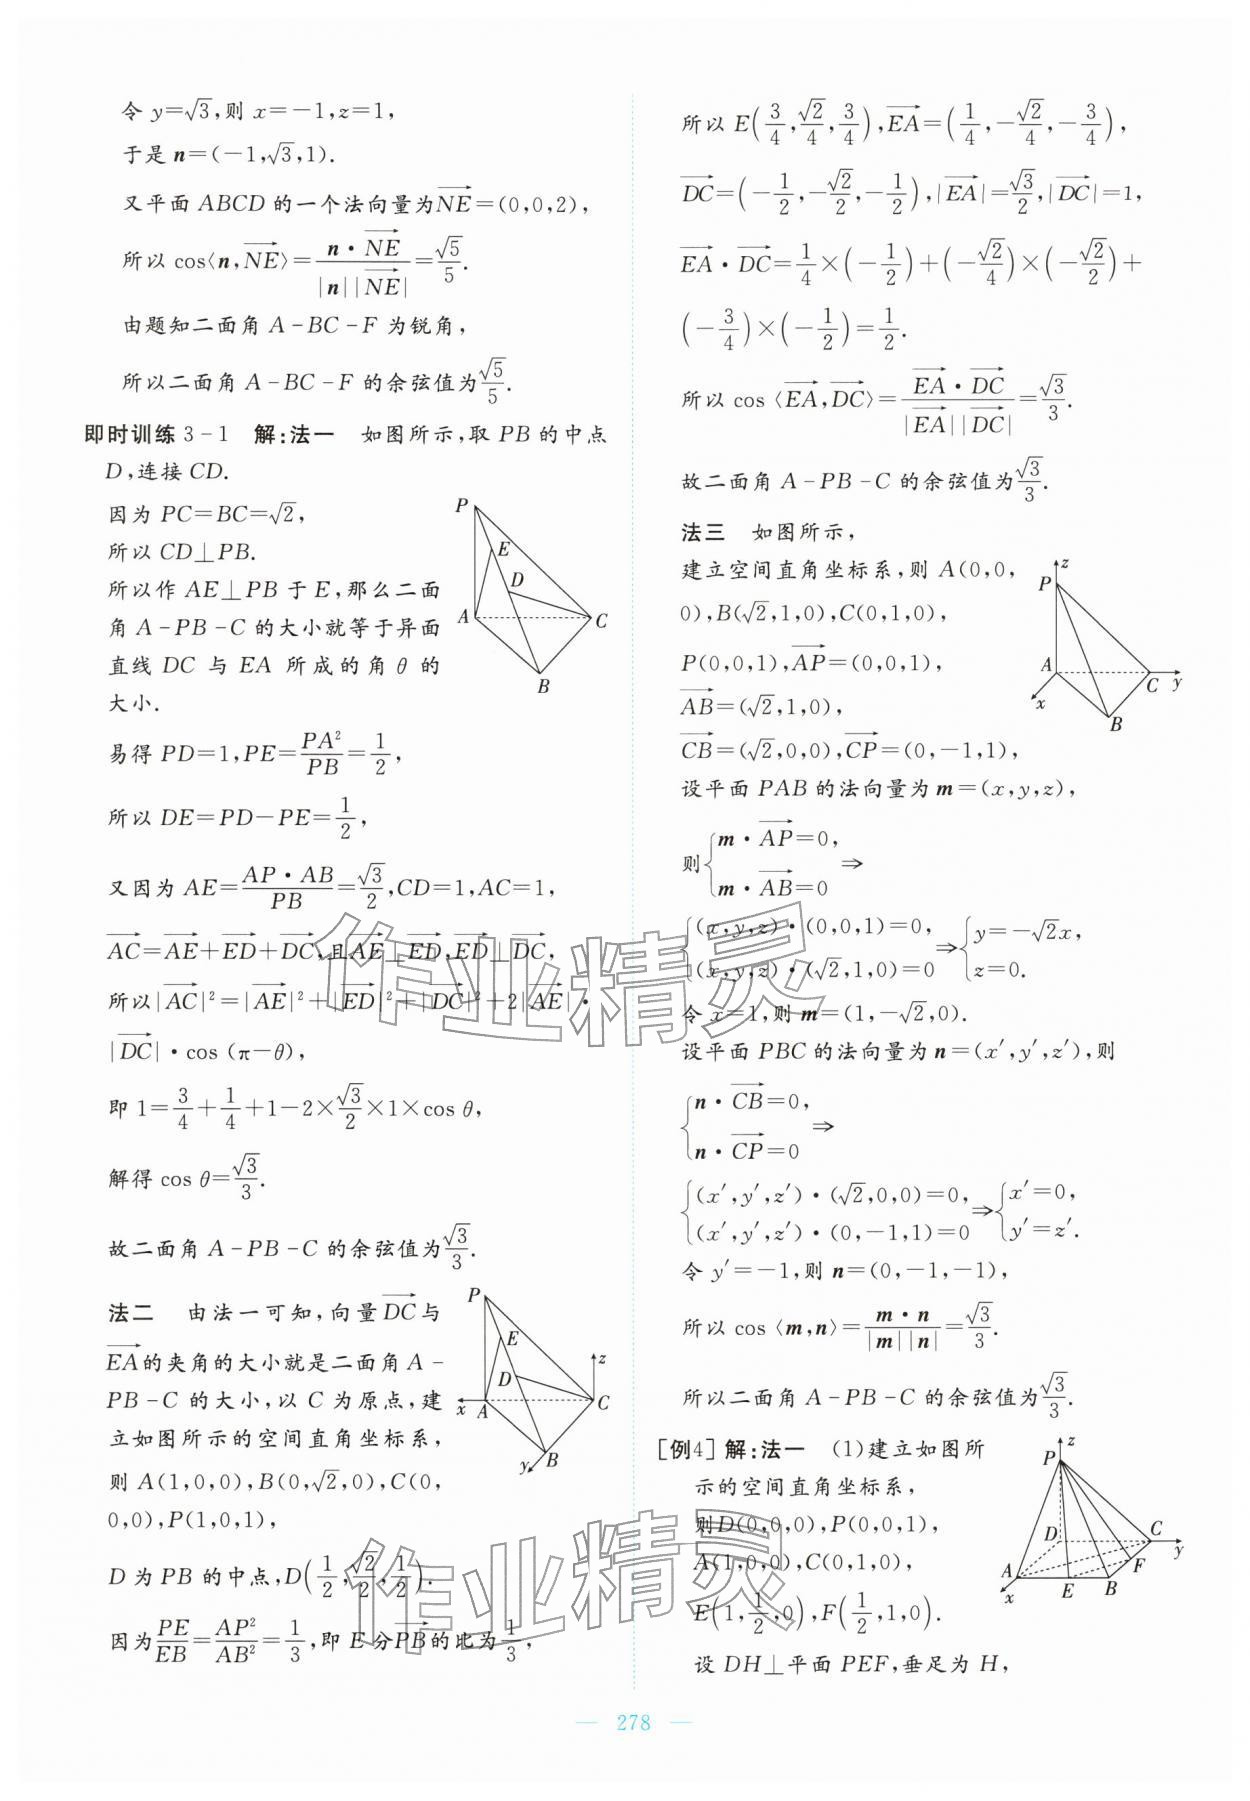 令 y=√3,则 x=-1,z=1,
于是 n=(-1,√3,1).
又平面 ABCD 的一个法向量为 $\overrightarrow{NE}$=(0,0,2),
所以 cos⟨n,$\overrightarrow{NE}$⟩=$\frac{n·\overrightarrow{NE}}{|n||\overrightarrow{NE}|}$=$\frac{\sqrt{5}}{5}$.
由题知二面角 A-BC-F 为锐角,
所以二面角 A-BC-F 的余弦值为$\frac{\sqrt{5}}{5}$.
即时训练 3-1 解:法一 如图所示,取 PB 的中点
D,连接 CD.
因为 PC=BC=√2,
所以 CD⊥PB.
所以作 AE⊥PB 于 E,那么二面
角 A-PB-C 的大小就等于异面
直线 DC 与 EA 所成的角 θ 的
大小.
P
E
D
A
C
B
易得 PD=1,PE=$\frac{PA^2}{PB}$=$\frac{1}{2}$,
所以 DE=PD-PE=$\frac{1}{2}$,
又因为 AE=$\frac{AP·AB}{PB}$=$\frac{\sqrt{3}}{2}$,CD=1,AC=1,
$\overrightarrow{AC}$=$\overrightarrow{AE}$+$\overrightarrow{ED}$+$\overrightarrow{DC}$,且$\overrightarrow{AE}$⊥$\overrightarrow{ED}$,$\overrightarrow{ED}$⊥$\overrightarrow{DC}$,
所以|$\overrightarrow{AC}$|²=|$\overrightarrow{AE}$|²+|$\overrightarrow{ED}$|²+|$\overrightarrow{DC}$|²+2|$\overrightarrow{AE}$|·
|$\overrightarrow{DC}$|·cos (π-θ),
即 1=$\frac{3}{4}$+$\frac{1}{4}$+1-2×$\frac{\sqrt{3}}{2}$×1×cos θ,
解得 cos θ=$\frac{\sqrt{3}}{3}$.
故二面角 A-PB-C 的余弦值为$\frac{\sqrt{3}}{3}$.
法二 由法一可知,向量$\overrightarrow{DC}$与
$\overrightarrow{EA}$的夹角的大小就是二面角 A-
PB-C 的大小,以 C 为原点,建
立如图所示的空间直角坐标系,
则 A(1,0,0),B(0,√2,0),C(0,
0,0),P(1,0,1),
P
E
D
z
x
A
C
y
B
D 为 PB 的中点,D($\frac{1}{2}$,$\frac{\sqrt{2}}{2}$,$\frac{1}{2}$).
因为$\frac{PE}{EB}$=$\frac{AP^2}{AB^2}$=$\frac{1}{3}$,即 E 分$\overrightarrow{PB}$的比为$\frac{1}{3}$,
所以 E($\frac{3}{4}$,$\frac{\sqrt{2}}{4}$,$\frac{3}{4}$),$\overrightarrow{EA}$=($\frac{1}{4}$,-$\frac{\sqrt{2}}{4}$,-$\frac{3}{4}$),
$\overrightarrow{DC}$=(-$\frac{1}{2}$,-$\frac{\sqrt{2}}{2}$,-$\frac{1}{2}$),|$\overrightarrow{EA}$|=$\frac{\sqrt{3}}{2}$,|$\overrightarrow{DC}$|=1,
$\overrightarrow{EA}$·$\overrightarrow{DC}$=$\frac{1}{4}$×(-$\frac{1}{2}$)+(-$\frac{\sqrt{2}}{4}$)×(-$\frac{\sqrt{2}}{2}$)+
(-$\frac{3}{4}$)×(-$\frac{1}{2}$)=$\frac{1}{2}$.
所以 cos ⟨$\overrightarrow{EA}$,$\overrightarrow{DC}$⟩=$\frac{\overrightarrow{EA}·\overrightarrow{DC}}{|\overrightarrow{EA}||\overrightarrow{DC}|}$=$\frac{\sqrt{3}}{3}$.
故二面角 A-PB-C 的余弦值为$\frac{\sqrt{3}}{3}$.
法三 如图所示,
建立空间直角坐标系,则 A(0,0,
0),B(√2,1,0),C(0,1,0),
P(0,0,1),$\overrightarrow{AP}$=(0,0,1),
$\overrightarrow{AB}$=(√2,1,0),
$\overrightarrow{CB}$=(√2,0,0),$\overrightarrow{CP}$=(0,-1,1),
z
P
A
x
C
y
B
设平面 PAB 的法向量为 m=(x,y,z),
则{m·$\overrightarrow{AP}$=0,
m·$\overrightarrow{AB}$=0 ⇒
{(x,y,z)·(0,0,1)=0, ⇒{y=-√2x,
(x,y,z)·(√2,1,0)=0 z=0.
令 x=1,则 m=(1,-√2,0).
设平面 PBC 的法向量为 n=(x′,y′,z′),则
{n·$\overrightarrow{CB}$=0,
n·$\overrightarrow{CP}$=0 ⇒
{(x′,y′,z′)·(√2,0,0)=0, ⇒{x′=0,
(x′,y′,z′)·(0,-1,1)=0 y′=z′.
令 y′=-1,则 n=(0,-1,-1),
所以 cos ⟨m,n⟩=$\frac{m·n}{|m||n|}$=$\frac{\sqrt{3}}{3}$.
所以二面角 A-PB-C 的余弦值为$\frac{\sqrt{3}}{3}$.
[例4] 解:法一 (1)建立如图所
示的空间直角坐标系,
则D(0,0,0),P(0,0,1),
A(1,0,0),C(0,1,0),
E(1,$\frac{1}{2}$,0),F($\frac{1}{2}$,1,0).
z
P
D
C
y
A
x
E
B
F
设 DH⊥平面 PEF,垂足为 H,
作业精灵
作业精灵
— 278 —